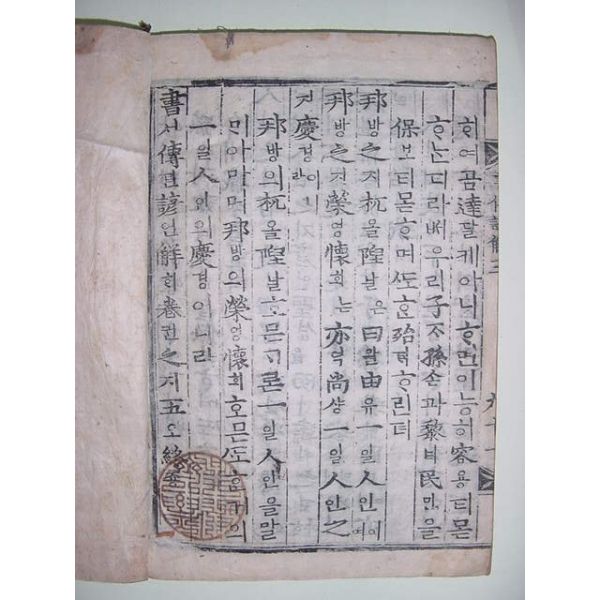 ᄒᆞ여곰達달케아니ᄒᆞ면이능히容용티몯
ᄒᆞᄂᆞᆫ디라ᄡᅥ우리子ᄌᆞ孫손과黎려民민을
保보티몯ᄒᆞ며ᄯᅩᄒᆞᆫ殆ᄐᆡᄒᆞ린뎌
邦방之지杌올隉날은曰왈由유一일人인이
邦방之지榮영懷회ᄂᆞᆫ亦역尙샹一일人인之
지慶경이
邦방의杌올隉날호믄 一일人인을말
ᄆᆡ아말며邦방의榮영懷회호믄ᄯᅩᄒᆞᆫ
一일人인의慶경이니라
書셔傳뎐諺언解ᄒᆡ卷권之지五오終